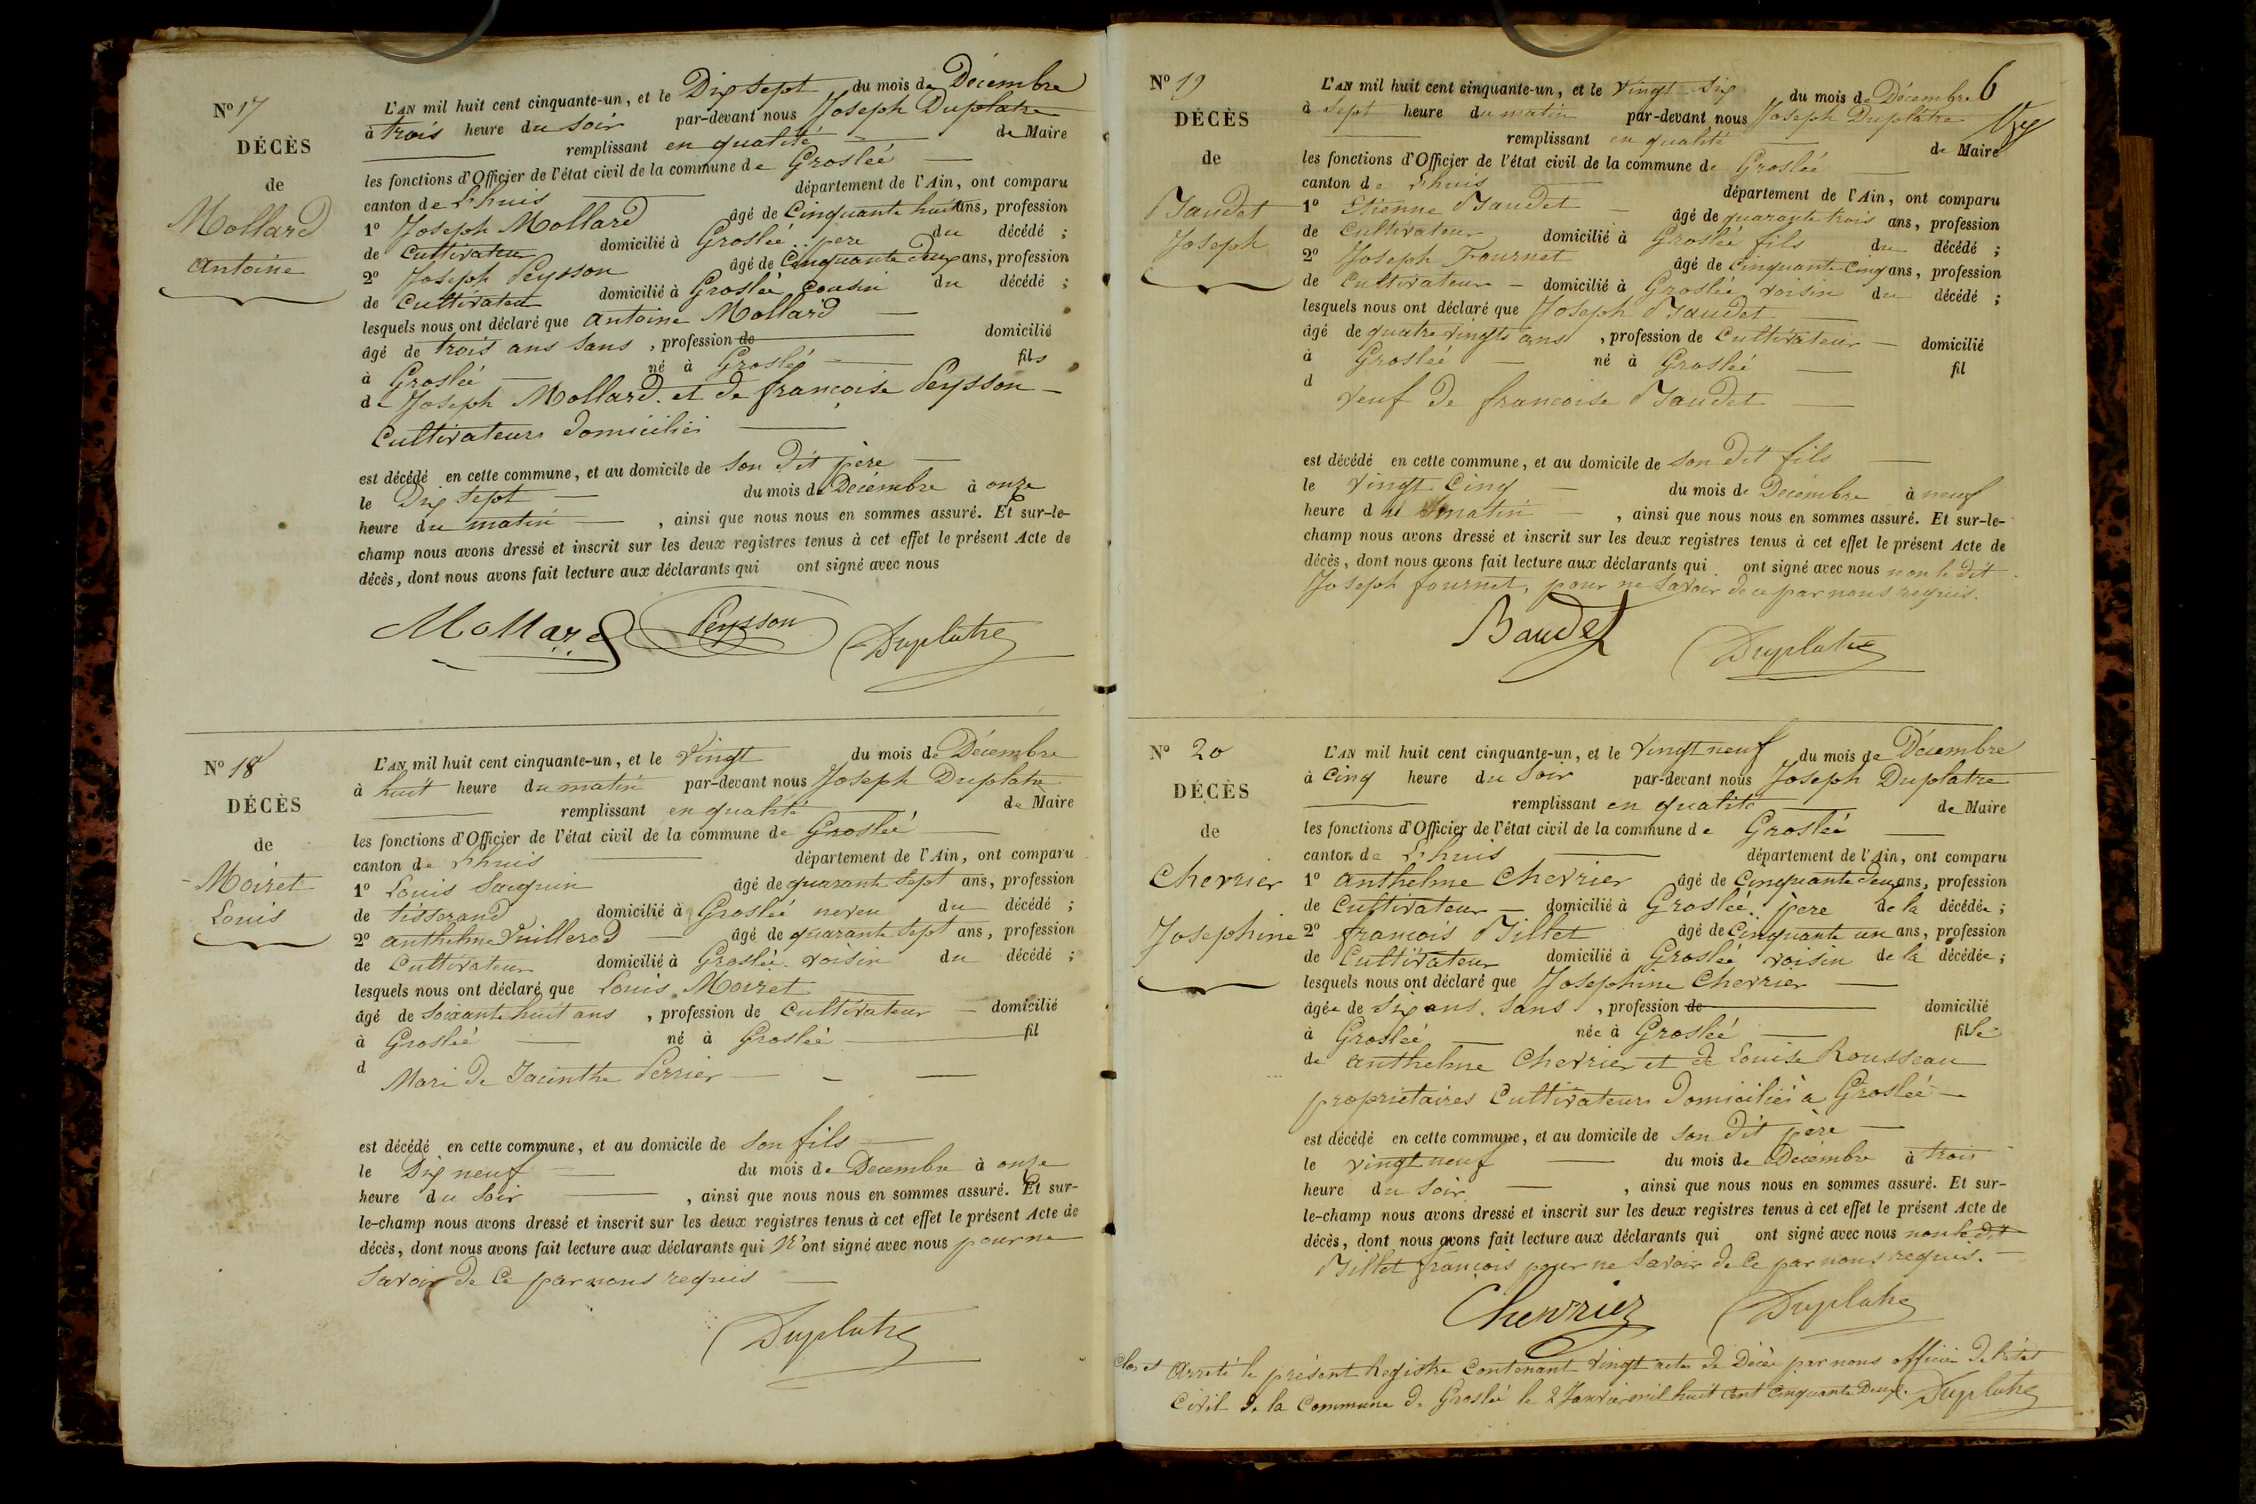 N° 17
DÉCÈS
de
Mollard
Antoine
L'AN mil huit cent cinquante-un, et le Dix sept du mois de Décembre
à trois heure du soir par-devant nous Joseph Duplatre
remplissant en qualité de Maire
les fonctions d'Officier de l'état civil de la commune de Groslée
canton de Lhuis département de l'Ain, ont comparu
1° Joseph Mollard âgé de Cinquante huit ans, profession
de Cultivateur domicilié à Groslée père du décédé ;
2° Joseph Peysson âgé de Cinquante deux ans, profession
de Cultivateur domicilié à Groslée Cousin du décédé ;
lesquels nous ont déclaré que Antoine Mollard
âgé de trois ans sans , profession de domicilié
à Groslée né à Groslée fils
de Joseph Mollard et de francoise Peysson
Cultivateurs domiciliés
est décédé en cette commune, et au domicile de son dit père
le Dix sept du mois de Décembre à onze
heure du matin , ainsi que nous nous en sommes assuré. Et sur-le-
champ nous avons dressé et inscrit sur les deux registres tenus à cet effet le présent Acte de
décès, dont nous avons fait lecture aux déclarants qui ont signé avec nous
Mollard Peysson Duplatre
N° 18
DÉCÈS
de
Moiret
Louis
L'AN mil huit cent cinquante-un, et le Vingt du mois de Décembre
à huit heure du matin par-devant nous Joseph Duplatre
remplissant en qualité de Maire
les fonctions d'Officier de l'état civil de la commune de Groslée
canton de Lhuis département de l'Ain, ont comparu
1° Louis Sauquin âgé de quarante sept ans, profession
de tisserand domicilié à Groslée neveu du décédé ;
2° anthelme Vuillerod âgé de quarante sept ans, profession
de Cultivateur domicilié à Groslée voisin du décédé ;
lesquels nous ont déclaré que Louis Moiret
âgé de soixante huit ans , profession de Cultivateur domicilié
à Groslée né à Groslée fil
d
Mari de Jacinthe Perrier
est décédé en cette commune, et au domicile de son fils
le Dix neuf du mois de Décembre à onze
heure du soir , ainsi que nous nous en sommes assuré. Et sur-
le-champ nous avons dressé et inscrit sur les deux registres tenus à cet effet le présent Acte de
décès, dont nous avons fait lecture aux déclarants qui N'ont signé avec nous pour ne
savoir de ce par nous requis
Duplatre
6
N° 19
DÉCÈS
de
Baudet
Joseph
L'AN mil huit cent cinquante-un, et le Vingt Six du mois de Décembre
à sept heure du matin par-devant nous Joseph Duplatre
remplissant en qualité de Maire
les fonctions d'Officier de l'état civil de la commune de Groslée
canton de Lhuis département de l'Ain, ont comparu
1° Etienne Baudet âgé de quarante trois ans, profession
de Cultivateur domicilié à Groslée fils du décédé ;
2° Joseph Fournet âgé de cinquante Cinq ans, profession
de Cultivateur domicilié à Groslée voisin du décédé ;
lesquels nous ont déclaré que Joseph Baudet
âgé de quatre vingts ans , profession de Cultivateur domicilié
à Groslée né à Groslée fil
d
Veuf de francoise Baudet
est décédé en cette commune, et au domicile de son dit fils
le Vingt Cinq du mois de Décembre à neuf
heure du matin , ainsi que nous nous en sommes assuré. Et sur-le-
champ nous avons dressé et inscrit sur les deux registres tenus à cet effet le présent Acte de
décès, dont nous avons fait lecture aux déclarants qui ont signé avec nous non le dit
Joseph fournet, pour ne savoir de ce par nous requis.
Baudet Duplatre
N° 20
DÉCÈS
de
Chevrier
Josephine
L'AN mil huit cent cinquante-un, et le Vingt neuf du mois de Décembre
à Cinq heure du soir par-devant nous Joseph Duplatre
remplissant en qualité de Maire
les fonctions d'Officier de l'état civil de la commune de Groslée
canton de Lhuis département de l'Ain, ont comparu
1° anthelme Chevrier âgé de Cinquante deux ans, profession
de Cultivateur domicilié à Groslée père de la décédée ;
2° francois Billet âgé de Cinquante un ans, profession
de Cultivateur domicilié à Groslée voisin de la décédée ;
lesquels nous ont déclaré que Josephine Chevrier
âgée de Six ans. sans , profession de domicilié
à Groslée née à Groslée fille
de anthelme Chevrier et de Louise Rousseau
propriétaires Cultivateurs Domiciliés à Groslée
est décédé en cette commune, et au domicile de son dit père
le vingt neuf du mois de Décembre à trois
heure du soir , ainsi que nous nous en sommes assuré. Et sur-
le-champ nous avons dressé et inscrit sur les deux registres tenus à cet effet le présent Acte de
décès, dont nous avons fait lecture aux déclarants qui ont signé avec nous non le dit
Billet francois pour ne savoir de ce par nous requis.
Chevrier Duplatre
Clos et Arreté le présent Registre Contenant Vingt actes de Décès par nous officier de l'état
Civil de la Commune de Groslée le 2 Janvier mil huit cent Cinquante Deux. Duplatre